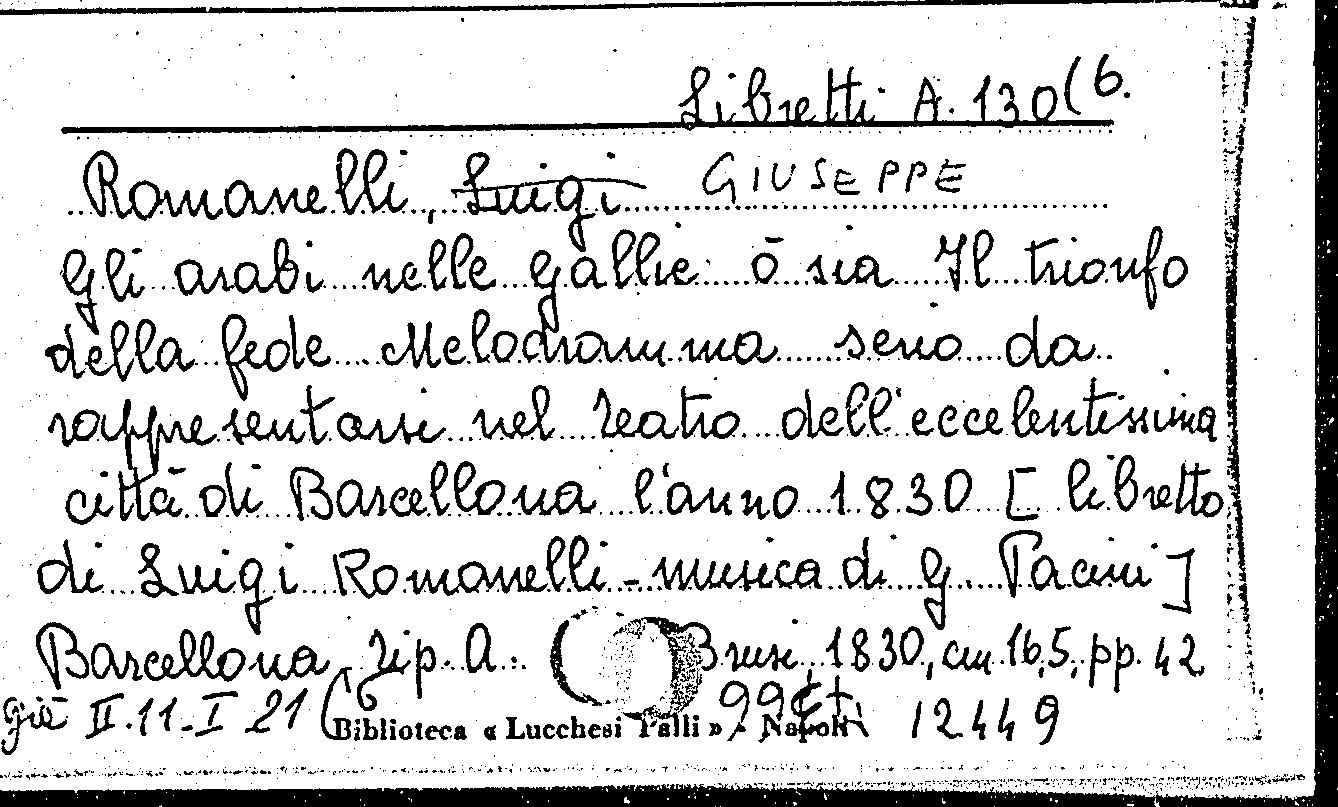 Libretti A. 130 (6.
Romanelli, Luigi GIUSEPPE
Gli arabi nelle gallie o sia Il trionfo
della fede Melodramma serio da
rappresentarsi nel teatro dell'eccelentissima
città di Barcellona l'anno 1830 [libretto
di Luigi Romanelli - musica di G. Pacini]
Barcellona, Tip. A. Brusi, 1830, cm 16,5, pp. 42
già II.11-I 21 (6 12449
Biblioteca « Lucchesi Palli » - Napoli